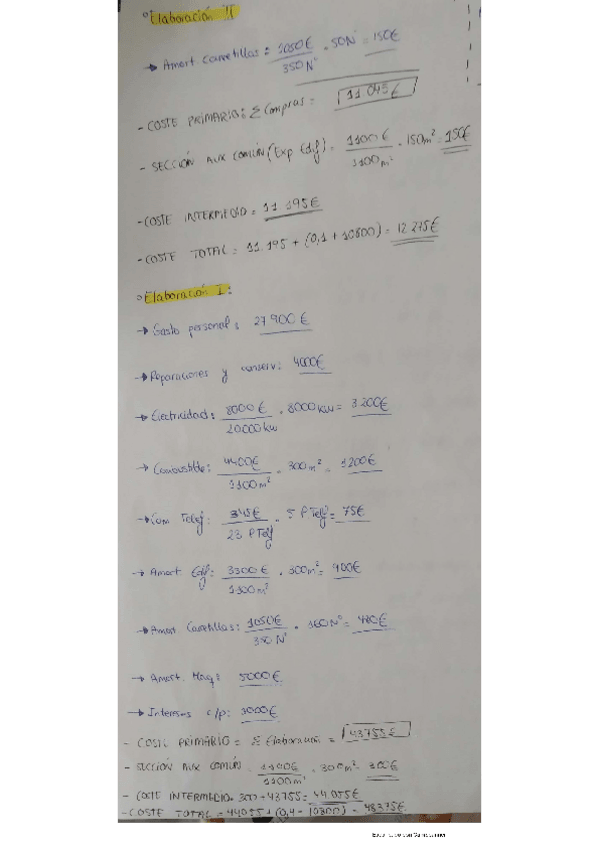 ° Elaboración II
→ Amort. Carretillas: 1050€ / 350 Nº · 50 Nº = 150€
- COSTE PRIMARIO: Σ Compras = 11 045€
- SECCIÓN AUX COMÚN (Exp Edif). 1100€ / 1100 m² · 150 m² = 150€
- COSTE INTERMEDIO = 11 195€
- COSTE TOTAL = 11 195 + (0,1 + 10800) = 12 275€
° Elaboración I:
→ Gasto personal: 27 900€
→ Reparaciones y conserv: 4000€
→ Electricidad: 8000€ / 20000 kw · 8000 kw = 3 200€
→ Combustible: 4400€ / 1100 m² · 300 m² = 1200€
→ Com Telef: 345€ / 23 P Telf · 5 P Telf = 75€
→ Amort. Edif: 3300€ / 1100 m² · 300 m² = 900€
→ Amort Carretillas: 1050€ / 350 Nº · 160 Nº = 480€
→ Amort. Maq: 5000€
→ Intereses c/p: 3000€
- COSTE PRIMARIO = Σ Elaboración = 43755€
- SECCIÓN AUX COMÚN. 1100€ / 1100 m² · 300 m² = 300€
- COSTE INTERMEDIO = 300 + 43755 = 44 055€
- COSTE TOTAL = 44055 + (0,4 - 10800) = 48375€